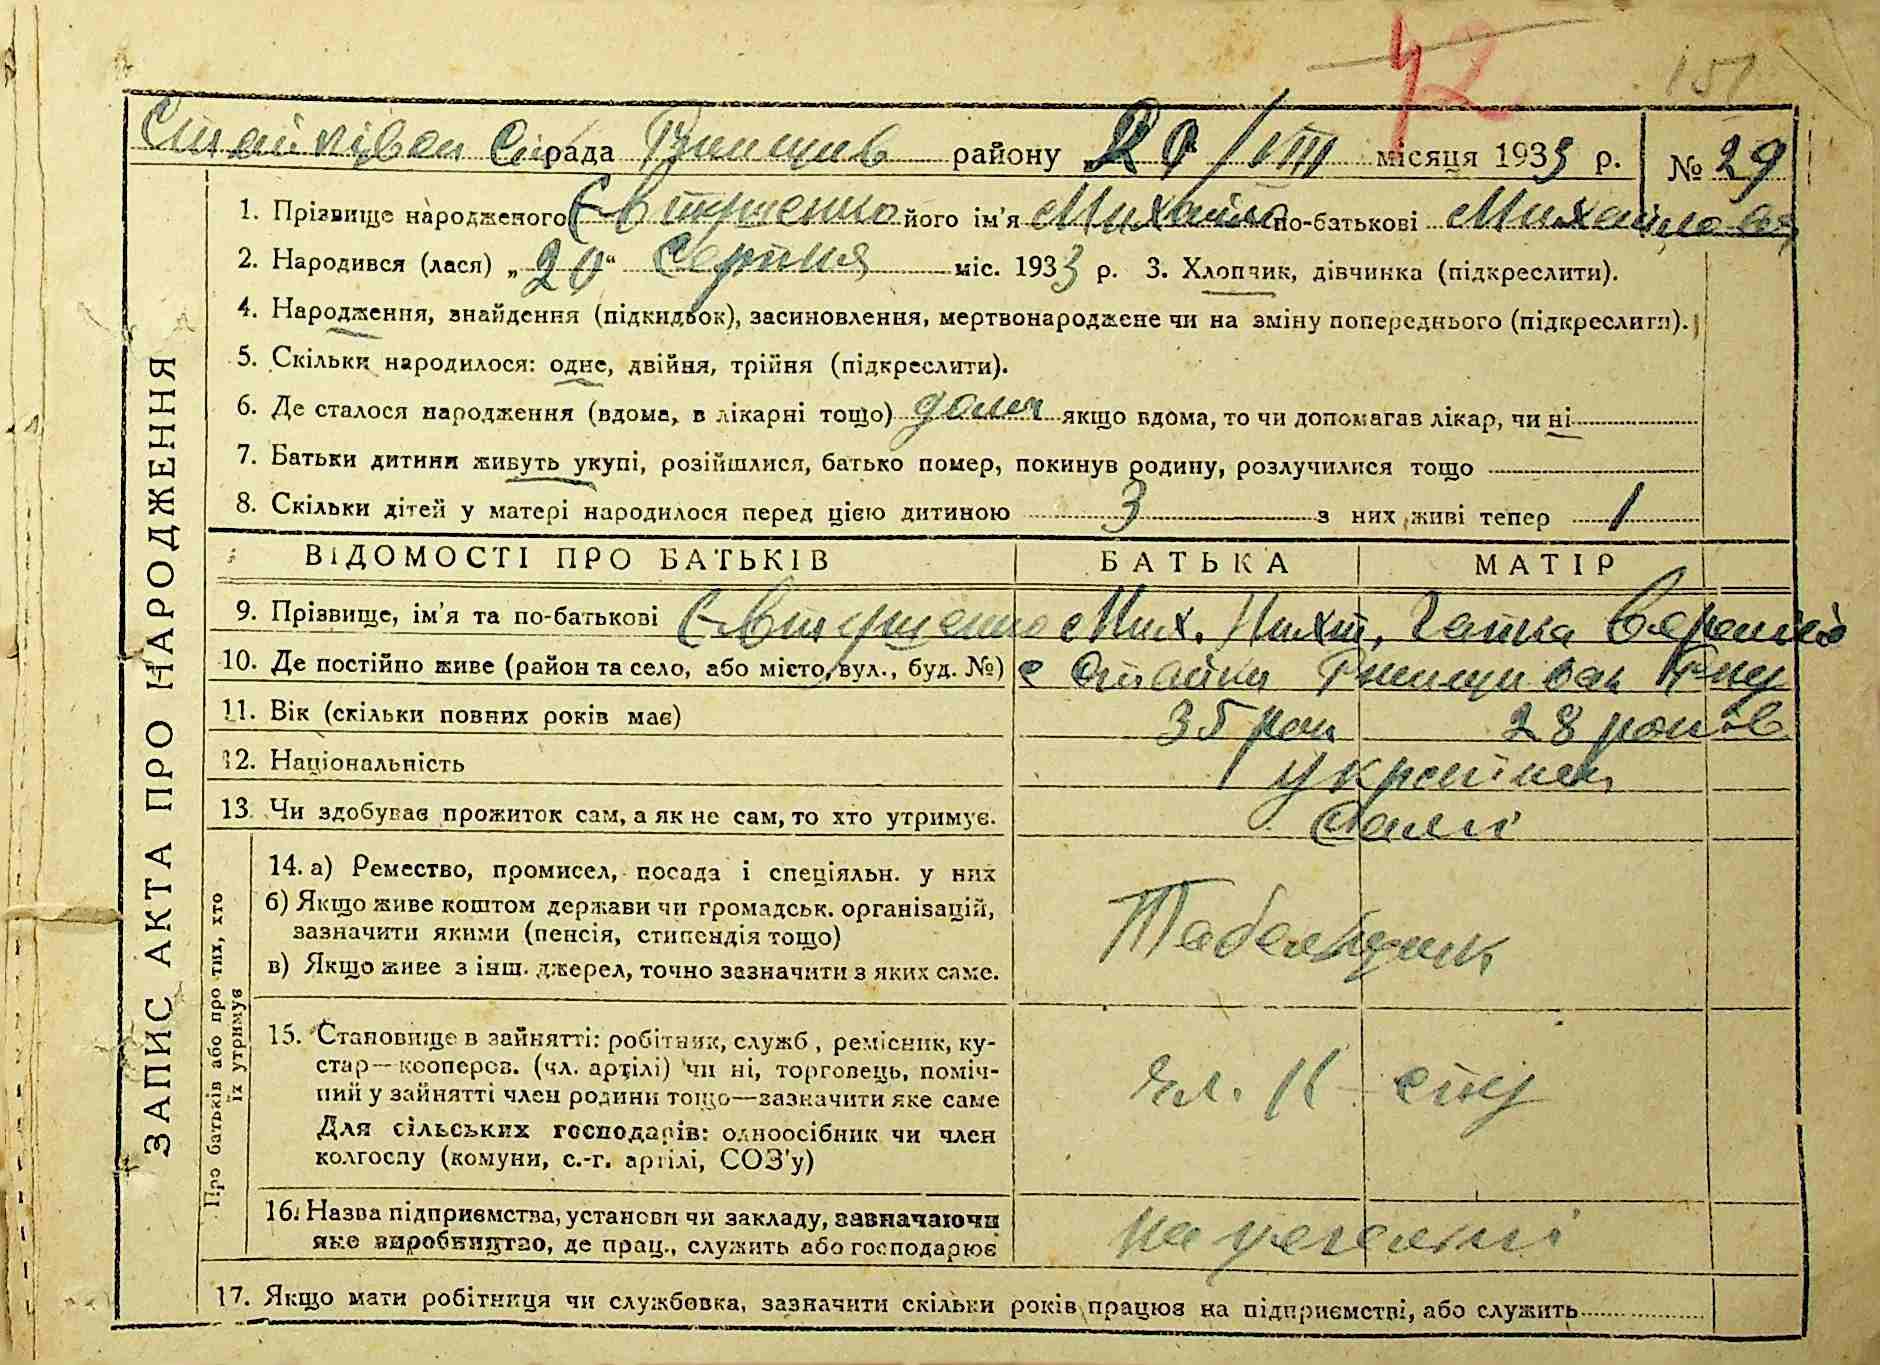 42
151
Стайківськ Сіл рада Ржищів району 20/VIII місяця 1933 р. № 29
ЗАПИС АКТА ПРО НАРОДЖЕННЯ
1. Прізвище народженого Євтушенко його ім'я Михайло по-батькові Михайлов
2. Народився (лася) „20“ Серпня міс. 1933 р. 3. Хлопчик, дівчинка (підкреслити).
4. Народження, знайдення (підкидьок), засиновлення, мертвонароджене чи на зміну попереднього (підкреслити).
5. Скільки народилося: одне, двійня, трійня (підкреслити).
6. Де сталося народження (вдома, в лікарні тощо) дома якщо вдома, то чи допомагав лікар, чи ні
7. Батьки дитини живуть укупі, розійшлися, батько помер, покинув родину, розлучилися тощо
8. Скільки дітей у матері народилося перед цією дитиною 3 з них живі тепер 1
ВІДОМОСТІ ПРО БАТЬКІВ БАТЬКА МАТІР
9. Прізвище, ім'я та по-батькові Євтушенко Мих. Никит.
10. Де постійно живе (район та село, або місто, вул., буд. №) с Стайки Ржищівськ
11. Вік (скільки повних років має) 35 рок 28 років
12. Національність українці
13. Чи здобуває прожиток сам, а як не сам, то хто утримує. Самі
Про батьків або про тих, хто
їх утримує
14. а) Ремество, промисел, посада і спеціяльн. у них
б) Якщо живе коштом держави чи громадськ. організацій,
зазначити якими (пенсія, стипендія тощо)
в) Якщо живе з інш. джерел, точно зазначити з яких саме.
Табельщик
15. Становище в зайнятті: робітник, служб., ремісник, ку-
стар—коопероз. (чл. артілі) чи ні, торговець, поміч-
ний у зайнятті член родини тощо—зазначити яке саме
Для сільських господарів: одноосібник чи член
колгоспу (комуни, с.-г. артілі, СОЗ'у)
чл. К-спу
16. Назва підприємства, установи чи закладу, зазначаючи
яке виробництво, де прац., служить або господарює
на цегельні
17. Якщо мати робітниця чи службовка, зазначити скільки років працює на підприємстві, або служить